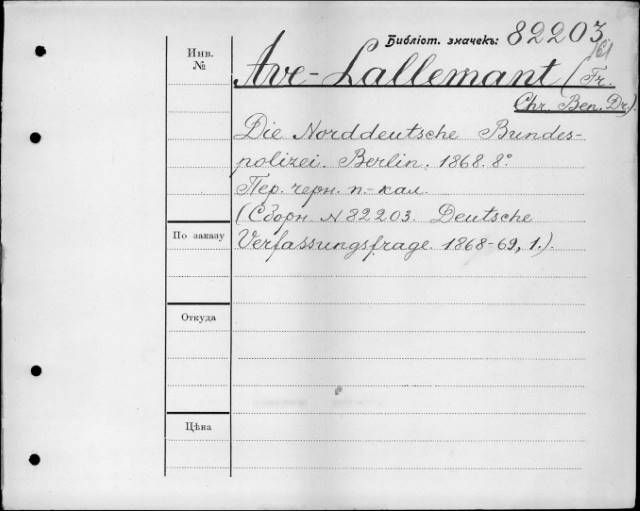 Библіот. значекъ: 82203/61
Инв.
№
Ave-Lallemant (Fr.
Chr. Ben. Dr.).
Die Norddeutsche Bundes-
polizei. Berlin. 1868. 8°
Пер. черн. п.-кал.
(Сборн. N 82203. Deutsche
По заказу
Verfassungsfrage. 1868-69, 1.).
Откуда
Цѣна